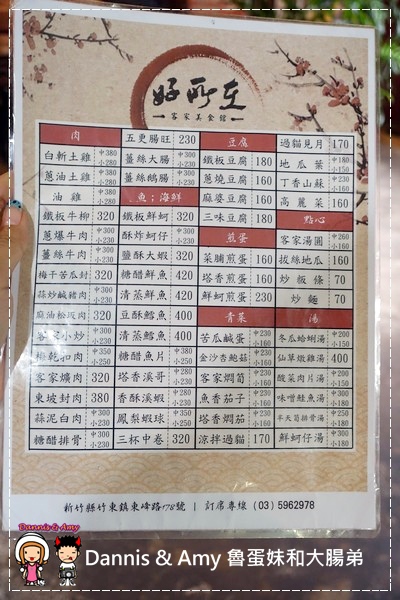 好所在
客家美食館
肉
白斬土雞 中380 小280
蔥油土雞 中380 小280
油雞
鐵板牛柳 320
蔥爆牛肉 中300 小230
薑絲牛肉 中300 小230
梅干苦瓜封 320
蒜炒鹹豬肉
麻油松阪肉 320
客家小炒
梅乾扣肉 中350 小250
客家爌肉 320
東坡封肉 380
蒜泥白肉 中300 小230
糖醋排骨
五更腸旺 230
薑絲大腸 中300 小230
薑絲鵝腸 中300 小230
魚；海鮮
鐵板鮮蚵 中300 小230
酥炸蚵仔 中300 小230
鹽酥大蝦 320
糖醋鮮魚 420
清蒸鮮魚 420
豆酥鱈魚 400
清蒸鱈魚 400
糖醋魚片 中380 小350
塔香溪哥 中280 小230
香酥溪蝦 中280 小230
鳳梨蝦球 中350 小250
三杯中卷 320
豆腐
鐵板豆腐 180
蔥燒豆腐 160
麻婆豆腐 160
三味豆腐 180
煎蛋
菜脯煎蛋 160
塔香煎蛋 160
鮮蚵煎蛋 230
青菜
苦瓜鹹蛋 中230 小160
金沙杏鮑菇 中230 小160
客家燜筍 中230 小160
魚香茄子 中230 小160
塔香燜茄 中230 小160
涼拌過貓 170
過貓見月 170
地瓜葉
丁香山蘇
高麗菜 中160
點心
客家湯圓
拔絲地瓜
炒粄條 70
炒麵 70
湯
冬瓜蛤蜊湯 中200 小150
仙草燉雞湯 400
酸菜肉片湯
味噌鮭魚湯
半天筍排骨湯
鮮蚵仔湯 中300 小180
新竹縣竹東鎮東峰路178號 | 訂席專線 (03) 5962978
Dannis & Amy
Dannis & Amy 魯蛋妹和大腸弟